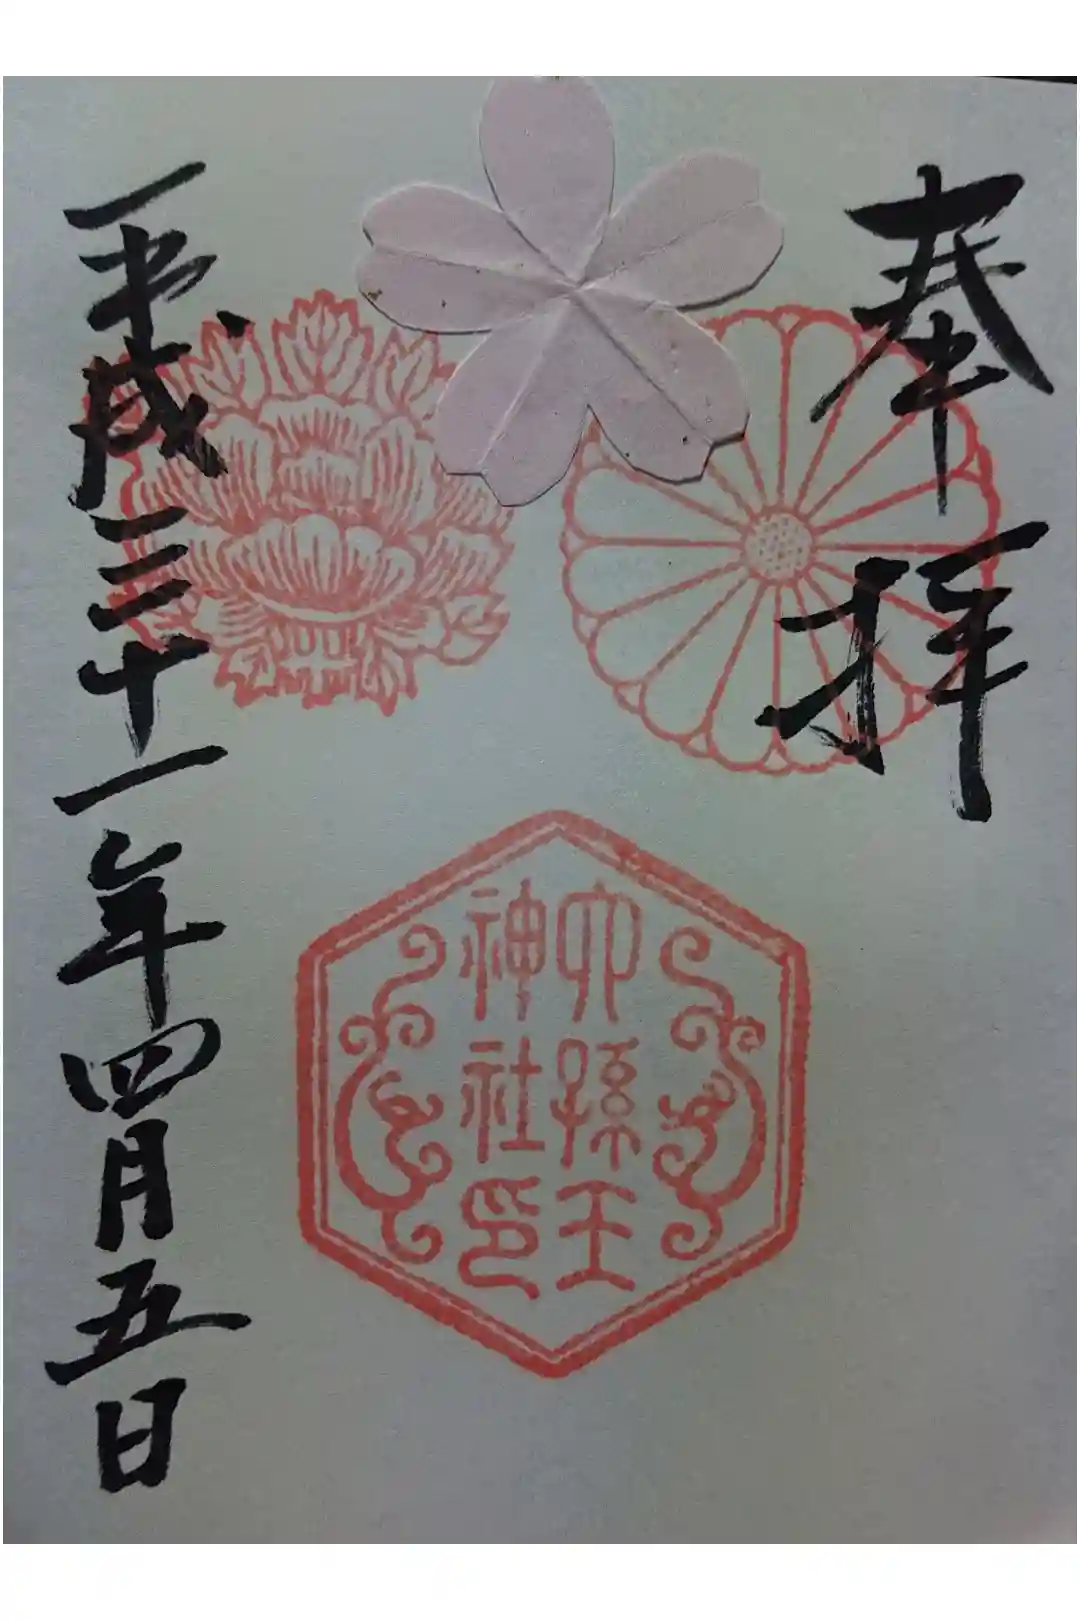 奉拝
六孫王
神社印
平成三十一年四月五日